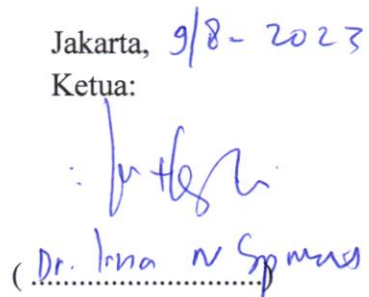 Jakarta, 9/8 - 2023
Ketua:
( Dr. Irna N )